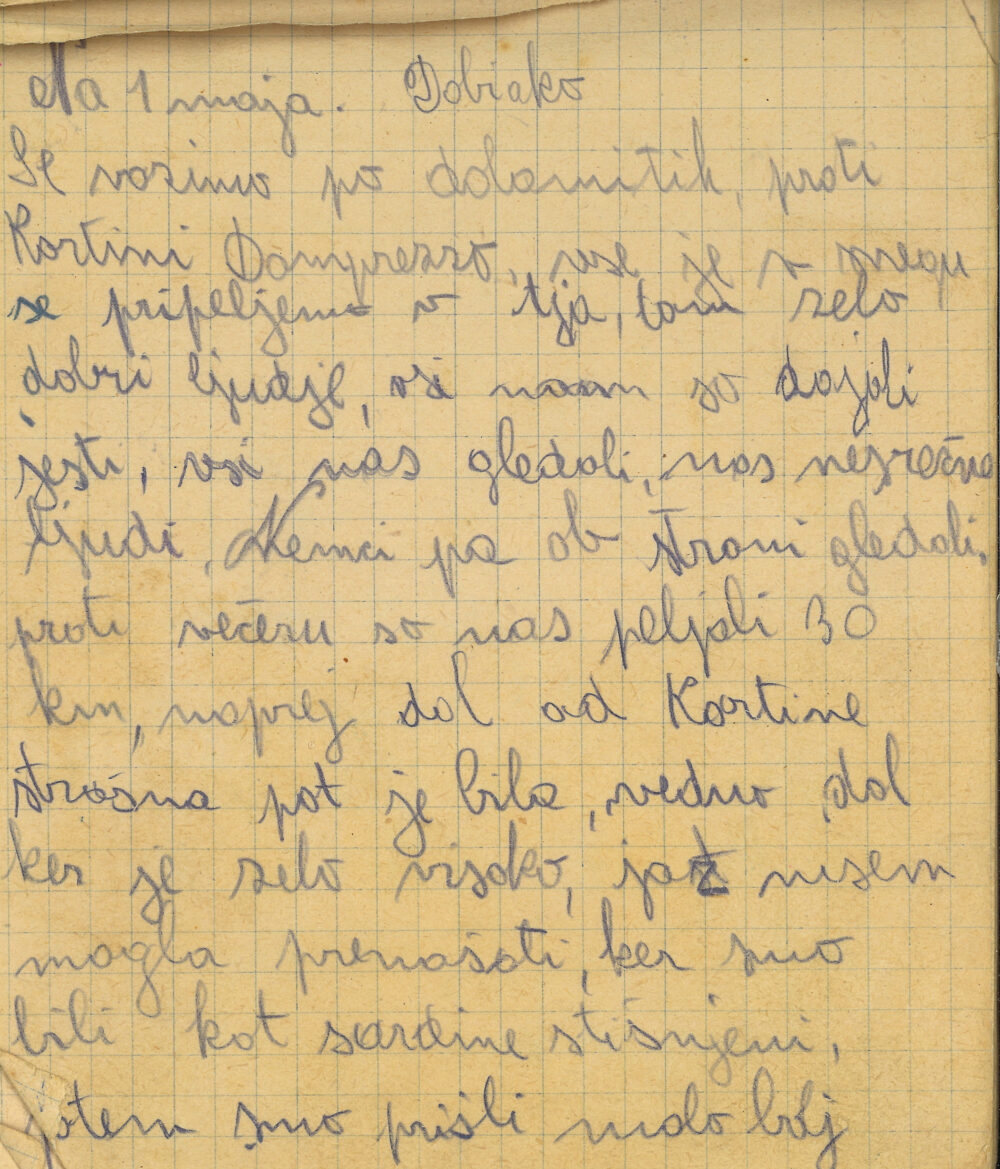 Na 1 maja. Dobiako
Se vozimo po dolomitih, proti
Kortini Damprezzo, vse je v snegu
se pripeljemo v tja, tam zelo
dobri ljudje, vsi nam so dajali
jesti, vsi nas gledali, nas nesrečne
ljudi, Nemci pa ob strani gledali,
proti večeru so nas peljali 30
km, naprej dol od Kortine
strašna pot je bila, vedno dol
ker je zelo visoko, jaz nisem
mogla prenašati, ker smo
bili kot sardine stisnjeni,
potem smo prišli malo bolj